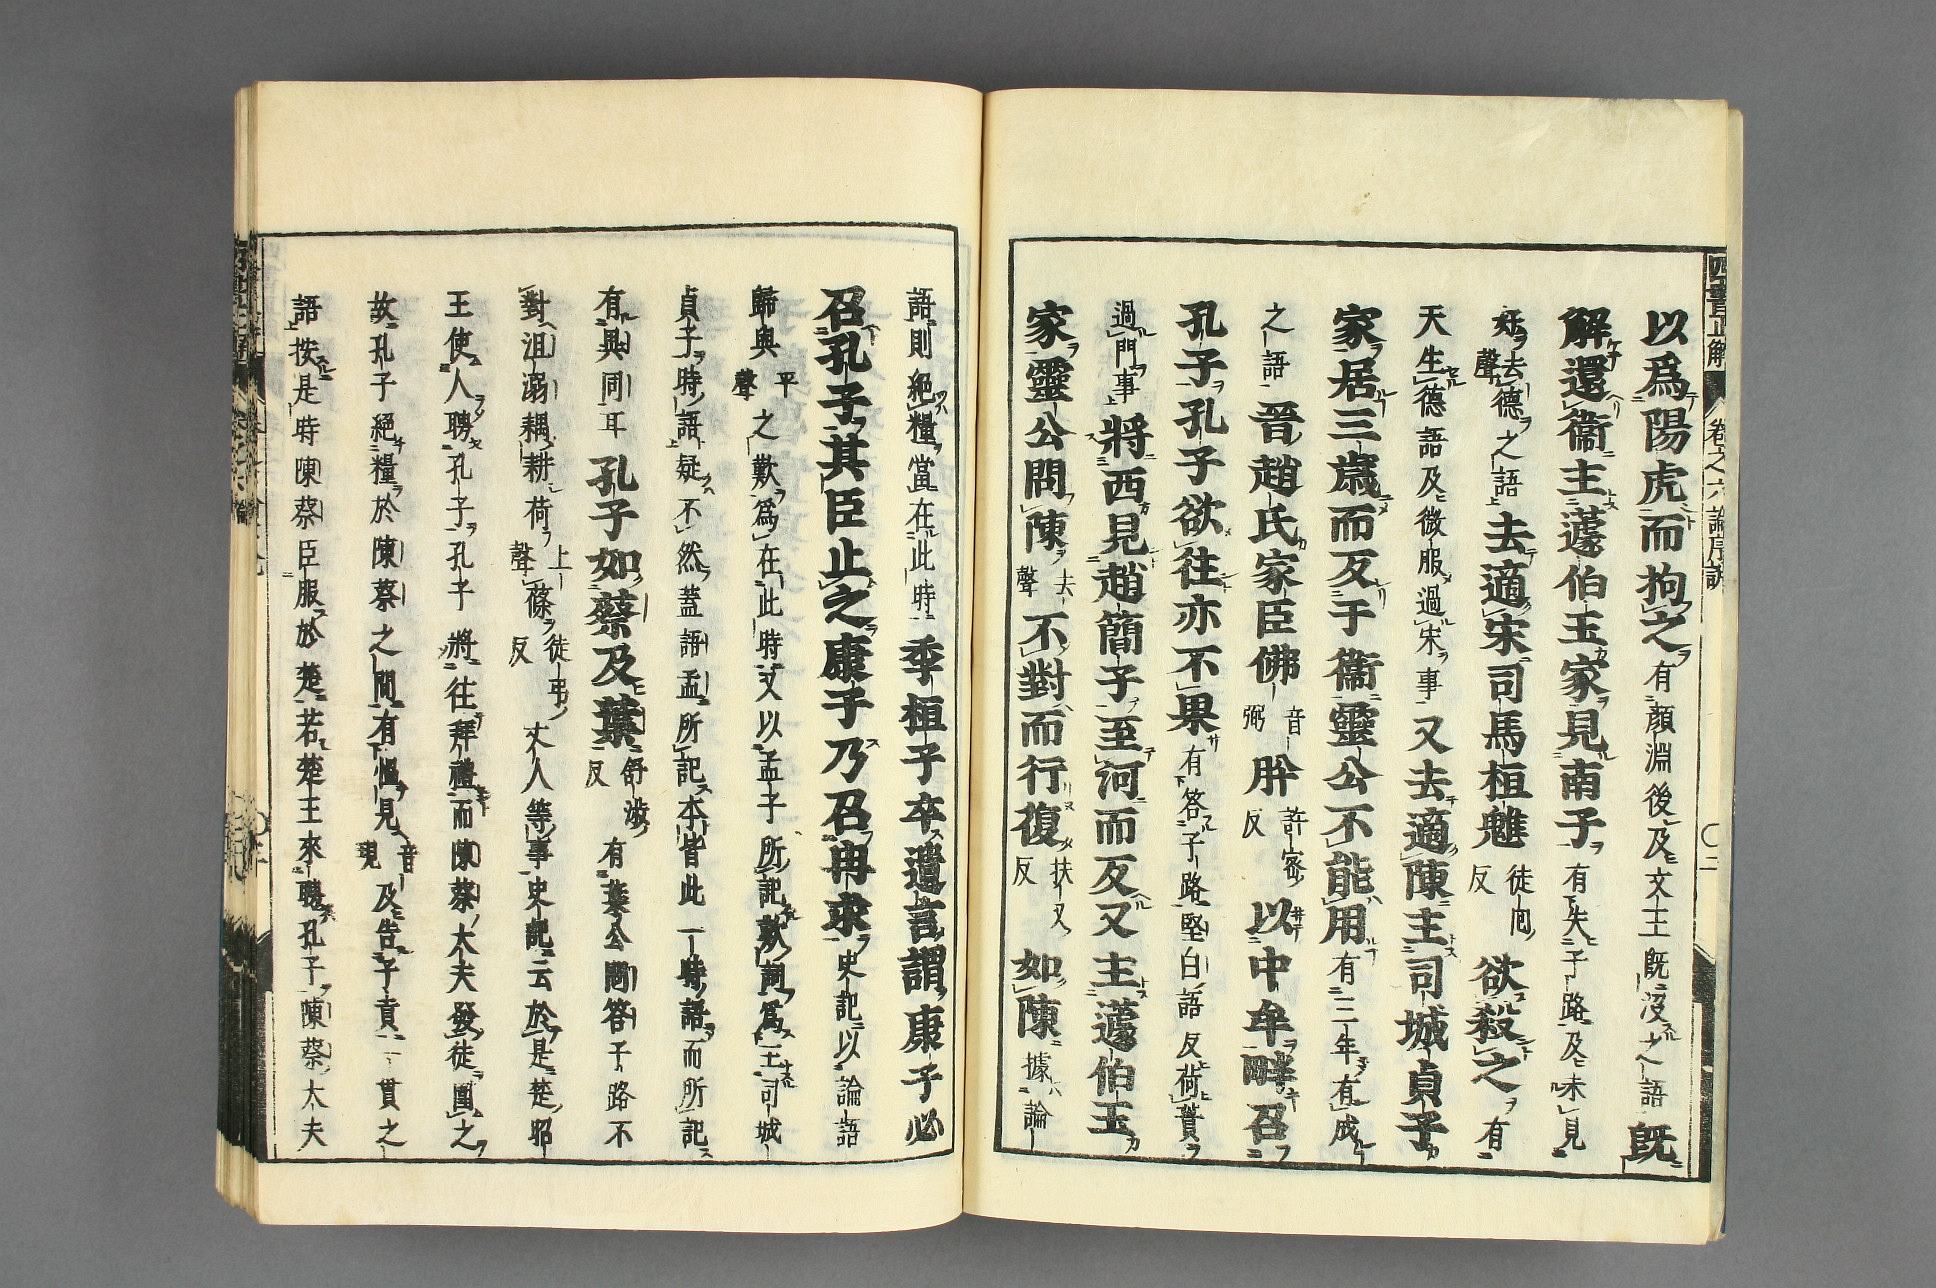 四書正解 卷之六 論序説 〇二
以爲陽虎而拘之有顏淵後及文王既沒之語既
解還衞主蘧伯玉家見南子有矢子路及未見
好去聲德之語去適宋司馬桓魋徒回反欲殺之有
天生德語及微服過宋事又去適陳主司城貞子
家居三歲而反于衞靈公不能用有三年有成
之語晉趙氏家臣佛音弼肸許密反以中牟畔召
孔子孔子欲往亦不果有答子路堅白語反荷蕢
過門事將西見趙簡子至河而反又主蘧伯玉
家靈公問陳去聲不對而行復扶又反如陳據論
語則絕糧當在此時季桓子卒遺言謂康子必
召孔子其臣止之康子乃召冉求史記以論語
歸與平聲之歎爲在此時又以孟子所記歎詞爲主司城
貞子時語疑不然蓋語孟所記本皆此一時語而所記
有異同耳孔子如蔡及葉舒涉反有葉公問答子路不
對沮溺耦耕荷上聲篠徒弔反丈人等事史記云於是楚昭
王使人聘孔子孔子將往拜禮而陳蔡大夫發徒圍之
故孔子絕糧於陳蔡之間有慍見音現及告子貢一貫之
語按是時陳蔡臣服於楚若楚王來聘孔子陳蔡大夫